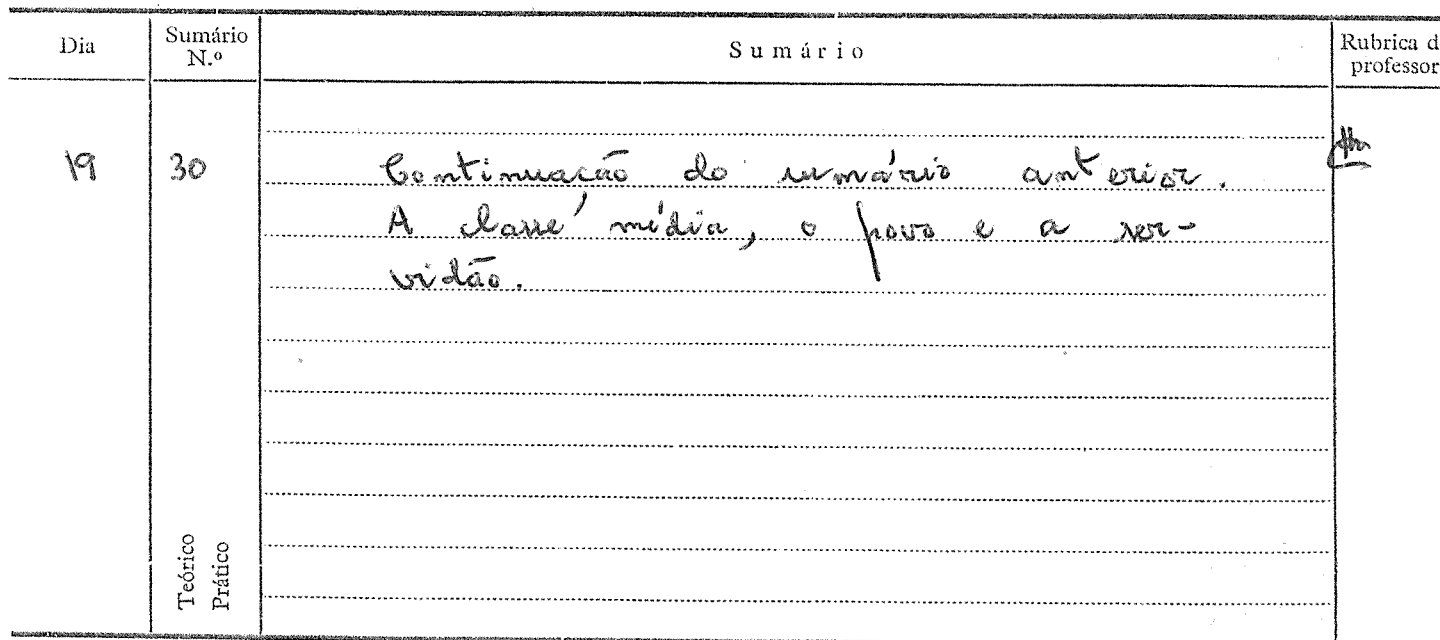 Dia
Sumário N.º
Sumário
Rubrica d
professor
19
30
Continuação do sumário anterior.
A classe média, o povo e a ser-
vidão.
Teórico
Prático